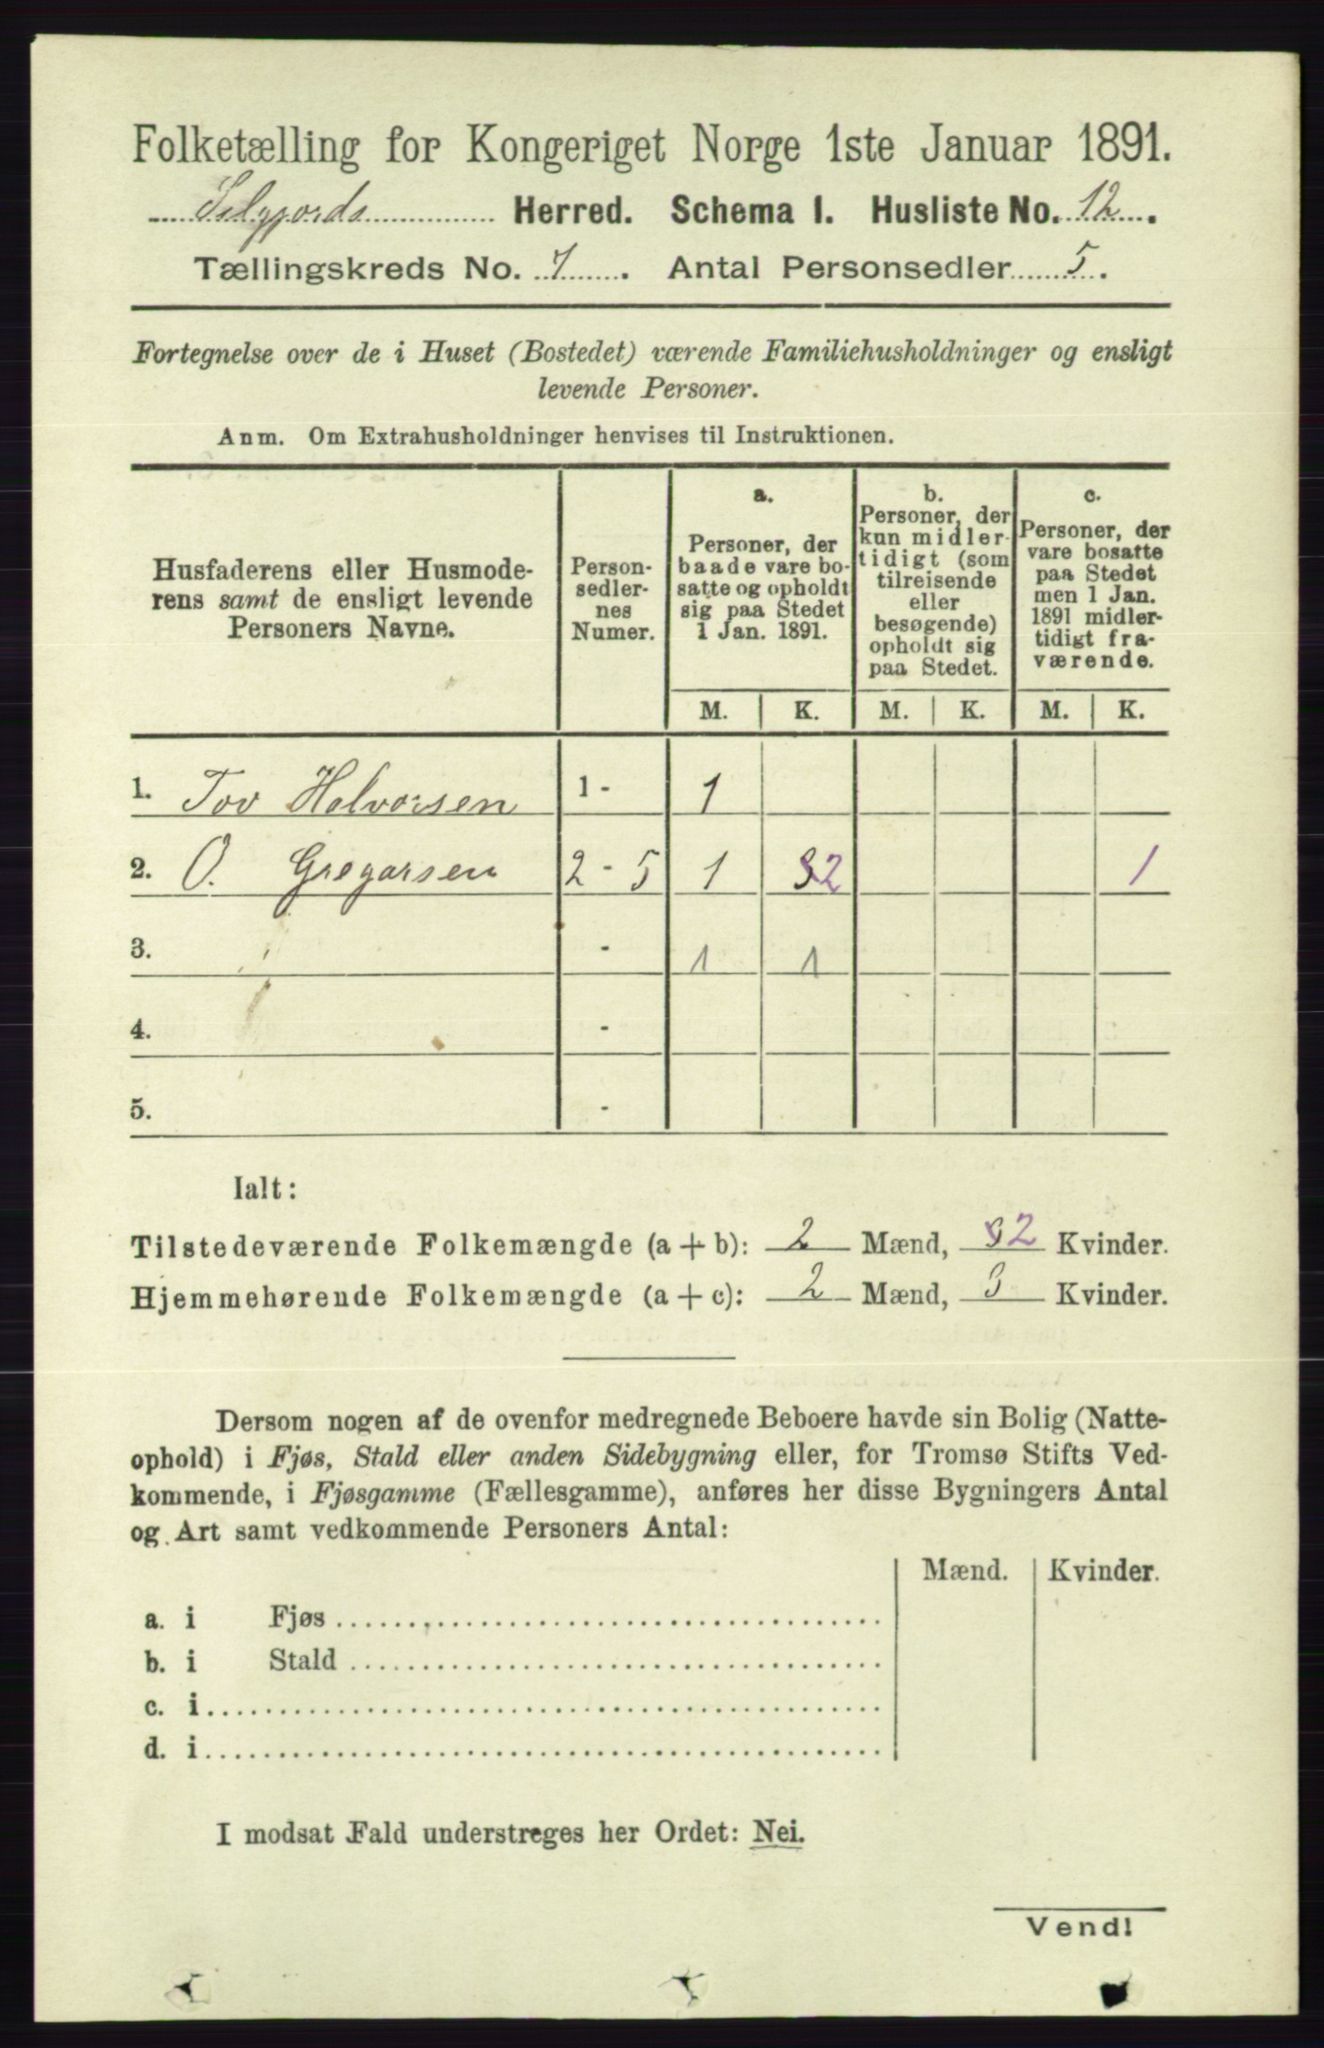 Folketælling for Kongeriget Norge 1ste Januar 1891.
Selgjords Herred. Schema I. Husliste No. 12.
Tællingskreds No. 7. Antal Personsedler 5.
Fortegnelse over de i Huset (Bostedet) værende Familiehusholdninger og ensligt
levende Personer.
Anm. Om Extrahusholdninger henvises til Instruktionen.
Husfaderens eller Husmode-
rens samt de ensligt levende
Personers Navne.
Person-
sedler-
nes
Numer.
a.
Personer, der
baade vare bo-
satte og opholdt
sig paa Stedet
1 Jan. 1891.
b.
Personer, der
kun midler-
tidigt (som
tilreisende
eller
besøgende)
opholdt sig
paa Stedet.
c.
Personer, der
vare bosatte
paa Stedet
men 1 Jan.
1891 midler-
tidigt fra-
værende.
M. K. M. K. M. K.
1. Tov Halvorsen 1 - 1
2. O. Gregarsen 2 - 5 1 32 1
3. - 1 1
4. -
5. -
Ialt:
Tilstedeværende Folkemængde (a + b): 2 Mænd, 32 Kvinder.
Hjemmehørende Folkemængde (a + c): 2 Mænd, 3 Kvinder.
Dersom nogen af de ovenfor medregnede Beboere havde sin Bolig (Natte-
ophold) i Fjøs, Stald eller anden Sidebygning eller, for Tromsø Stifts Ved-
kommende, i Fjøsgamme (Fællesgamme), anføres her disse Bygningers Antal
og Art samt vedkommende Personers Antal:
Mænd. Kvinder.
a. i Fjøs
b. i Stald
c. i
d. i
I modsat Fald understreges her Ordet: Nei.
Vend!